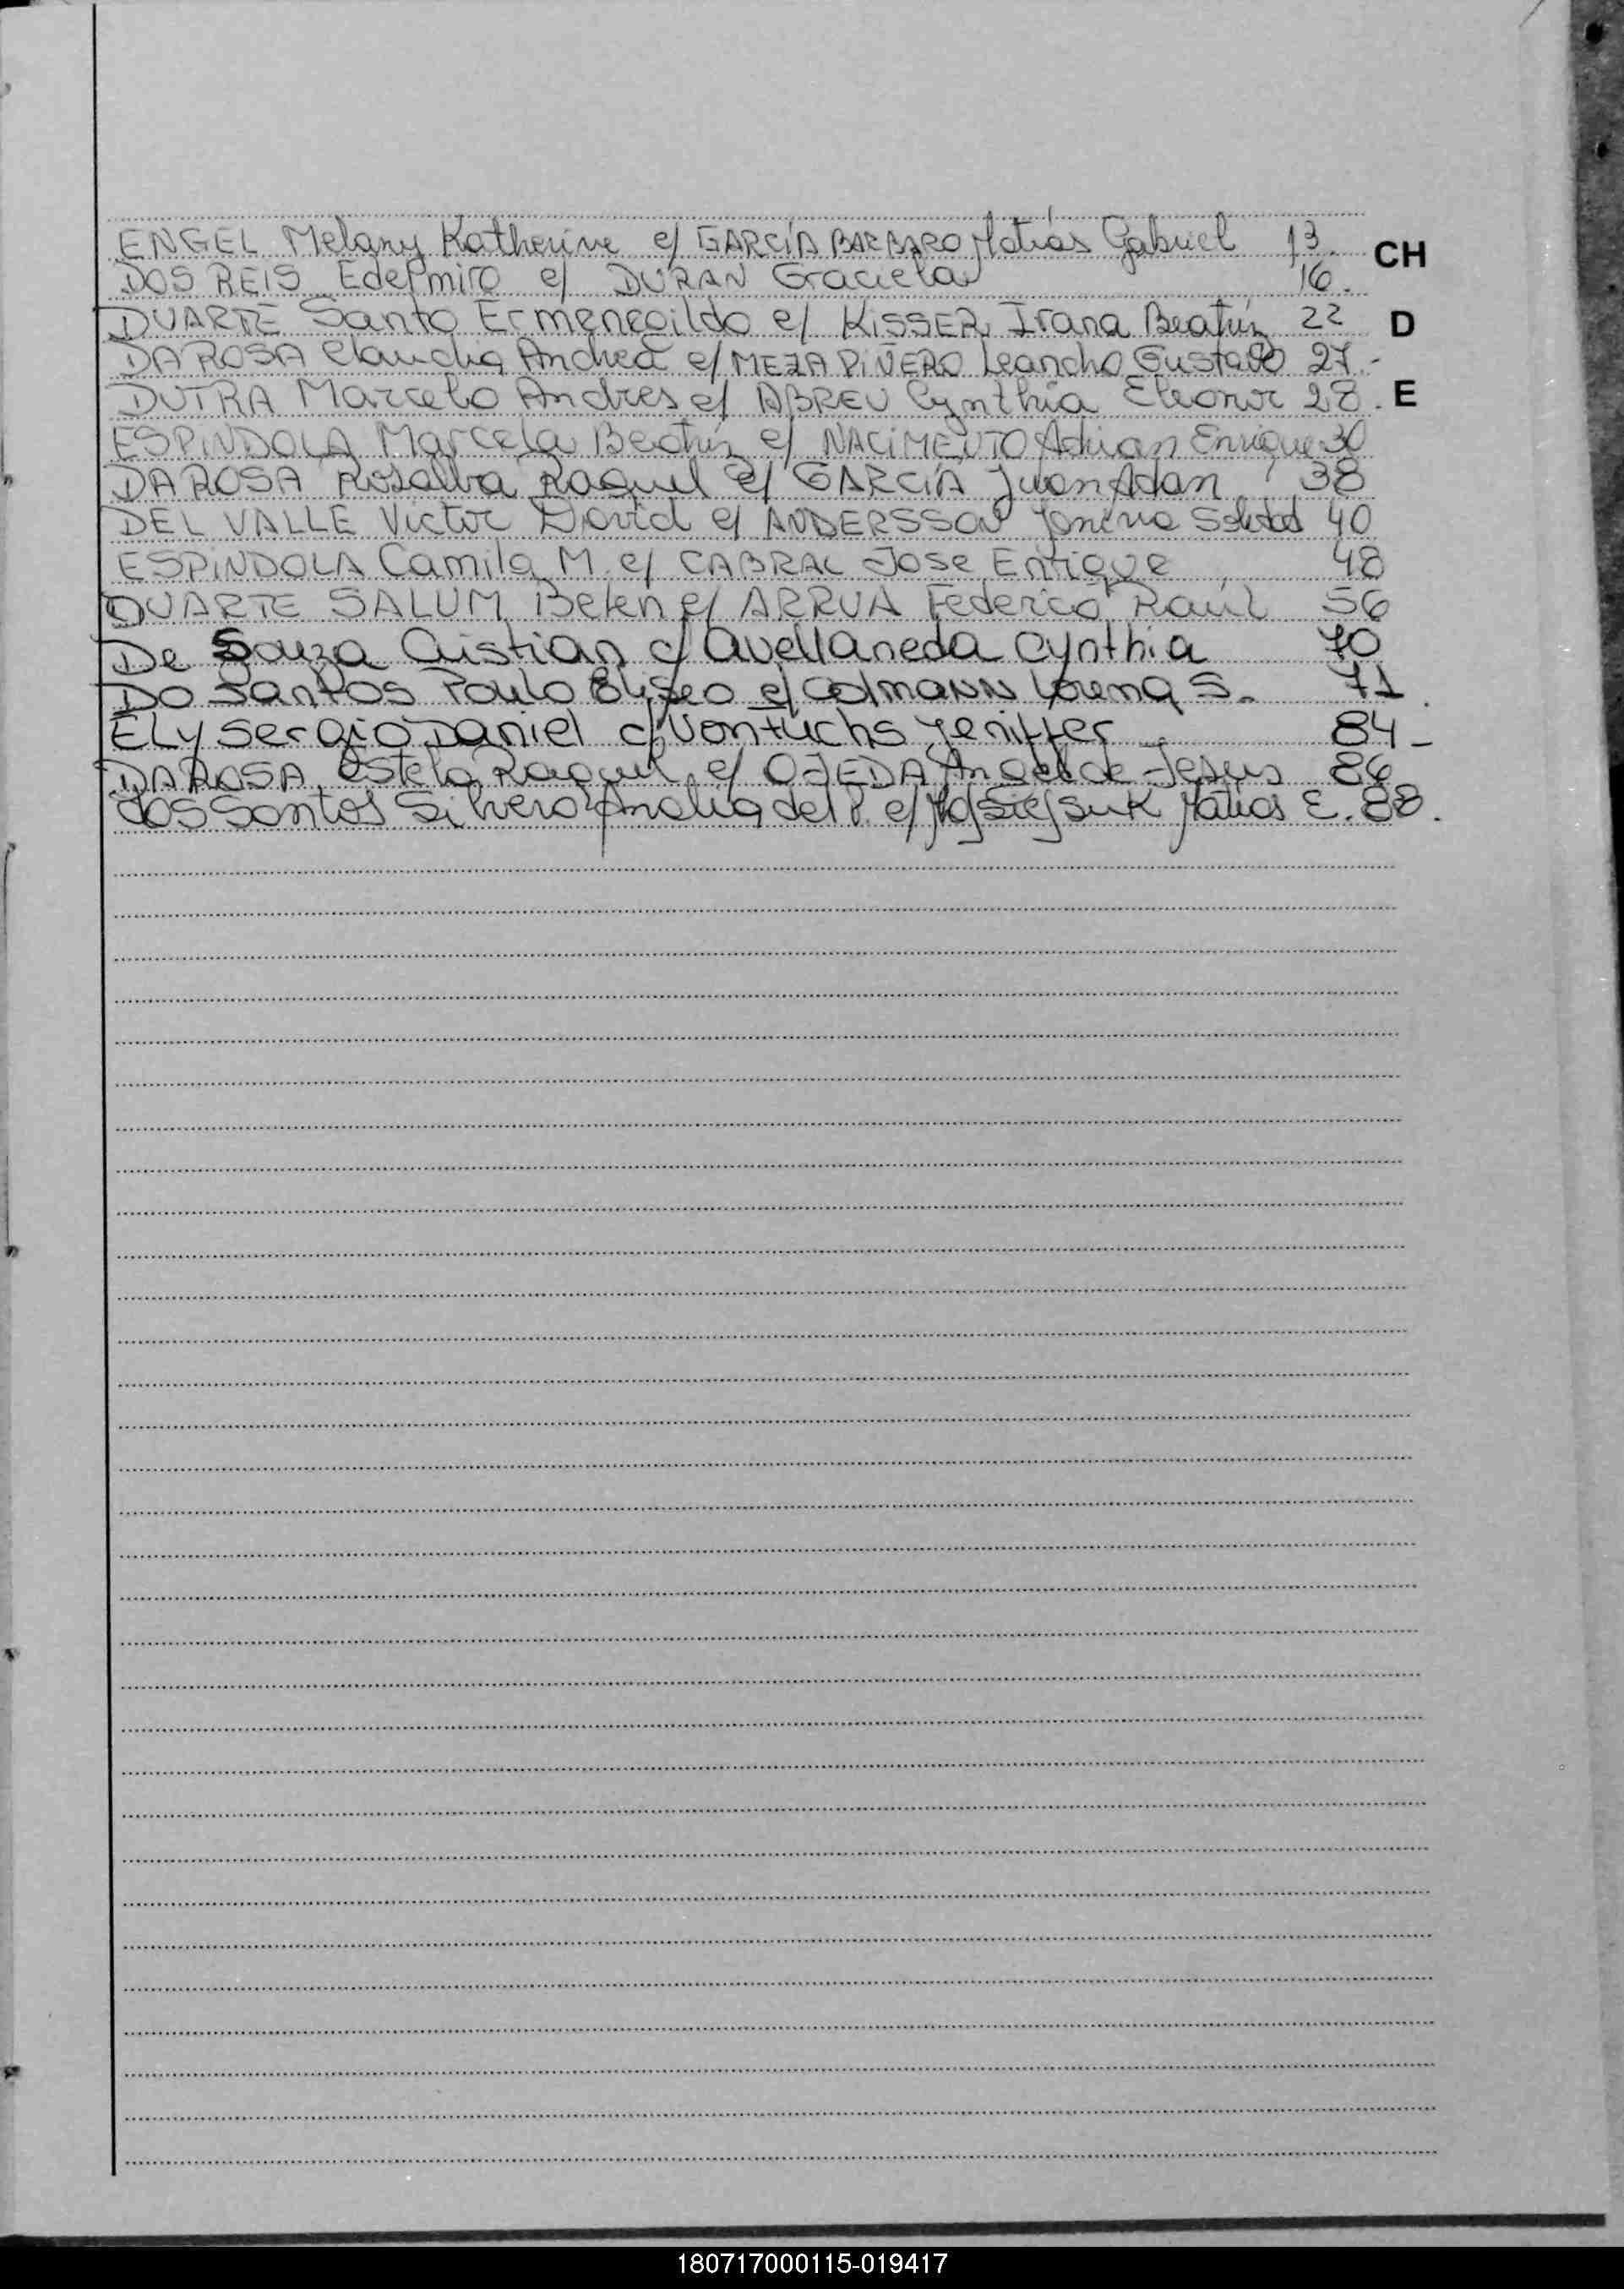 ENGEL Melany Katherine c/ GARCÍA BARBARO Matías Gabriel 13.
CH
DOS REIS Edelmiro c/ DURAN Graciela 16.
DUARTE Santo Ermenegildo c/ KISSER Irana Beatríz 22
D
DA ROSA Claudia Andrea c/ MEZA PIÑERO Leandro Gustavo 27.-
DUTRA Marcelo Andres c/ ABREU Cynthia Eleonor 28.
E
ESPINDOLA Marcela Beatríz c/ NACIMENTO Adrian Enrique 30
DA ROSA Rosalba Raquel c/ GARCÍA Juan Adan 38
DEL VALLE Victor David c/ ANDERSSON Janina Soledad 40
ESPINDOLA Camila M. c/ CABRAL Jose Enrique 48
DUARTE SALUM Belen c/ ARRUA Federico Raúl 56
De Souza Cristian c/ Avellaneda Cynthia 70
Do Santos Paulo Eliseo c/ Colmann Lorena S. 71.
Ely Sergio Daniel c/ Vontuchs Jeniffer 84-
DA ROSA Estela Raquel c/ OJEDA Angel de Jesús 86
dos Santos Silvero Analia del P. c/ Matias E. 88.
180717000115-019417